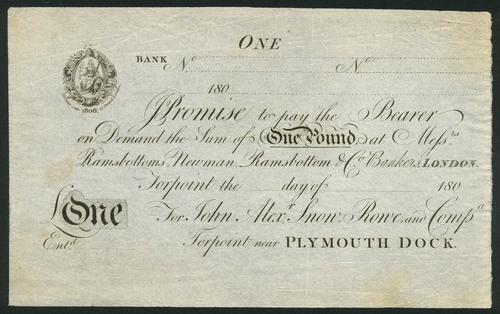 ONE
BANK No No
180
1806.
I Promise to pay the Bearer
on Demand the Sum of One Pound at Messrs
Ramsbottoms, Newman, Ramsbottom & Co Bankers, LONDON.
Torpoint the day of 180
£One For John, Alexr Snow, Rowe, and Compa
Entd Torpoint near PLYMOUTH DOCK.